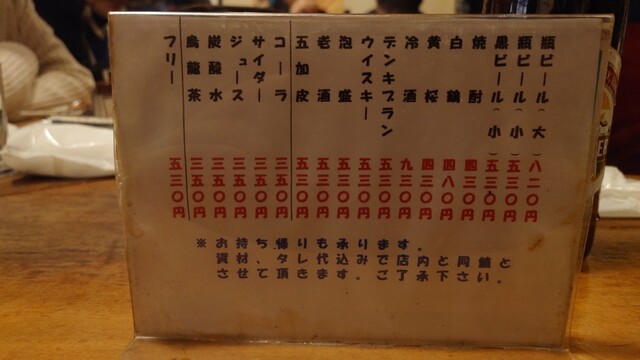 瓶ビール（大） 八二〇円
瓶ビール（小） 五三〇円
黒ビール（小） 五三〇円
焼酎 四三〇円
白鶴 四八〇円
黄桜 四三〇円
冷酒 九三〇円
デンキブラン 五三〇円
ウイスキー 五三〇円
泡盛 五三〇円
老酒 五三〇円
五加皮 五三〇円
コーラ 三五〇円
サイダー 三五〇円
ジュース 三五〇円
炭酸水 三五〇円
烏龍茶 三五〇円
フリー 五三〇円
※お持ち帰りも承ります。
資材、タレ代込みで店内と同額と
させて頂きます。ご了承下さい。